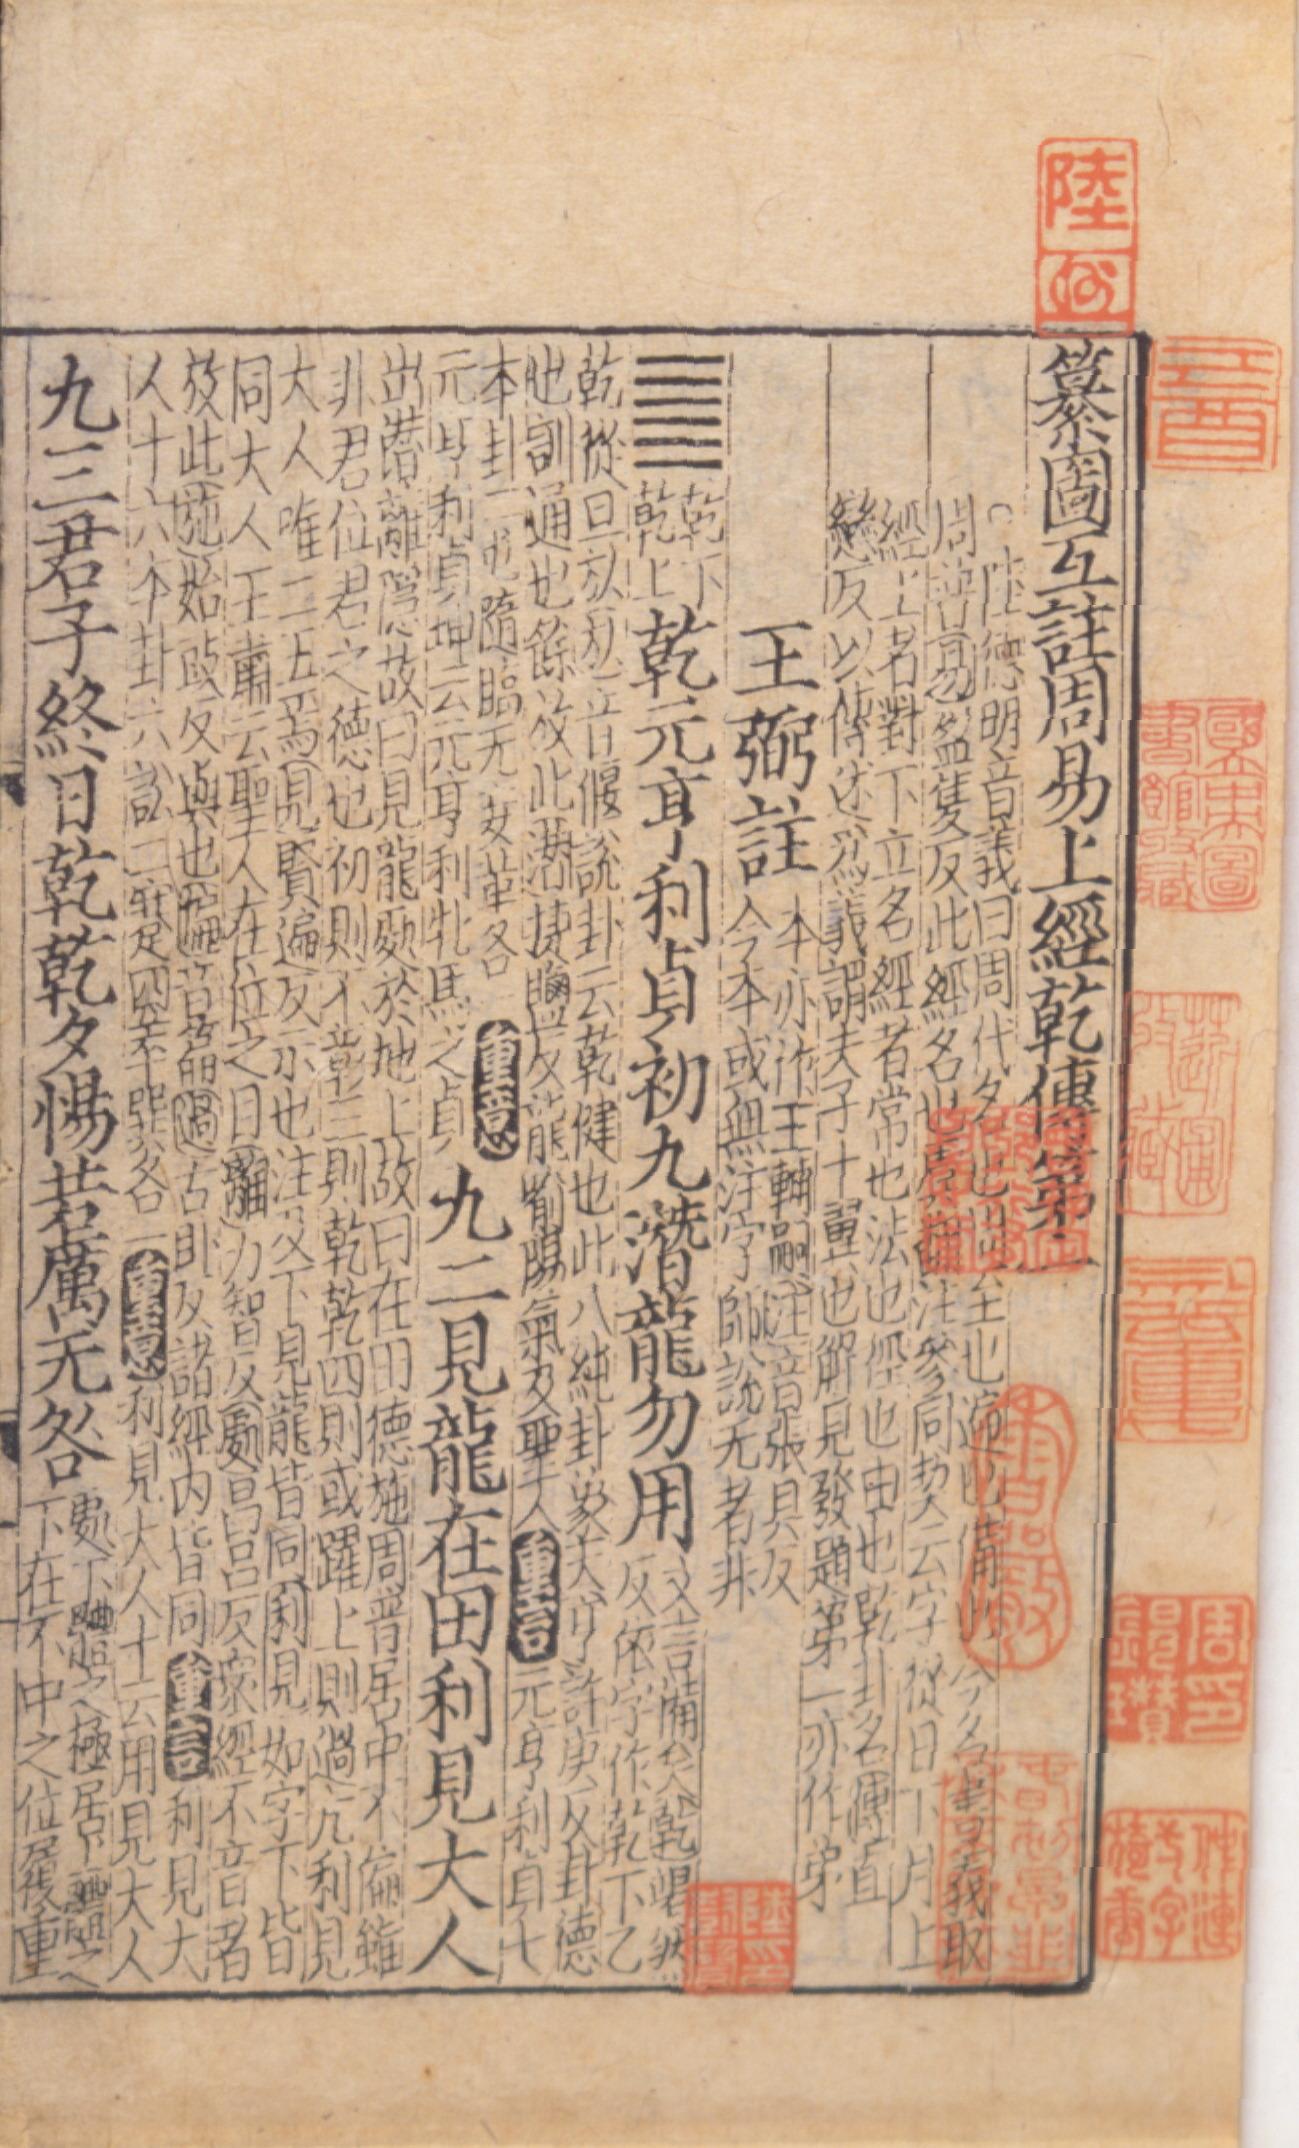 纂圖互註周易上經乾傳第一
陸德明音義曰周代名也周至也遍也備也今名書義取
周普易盈隻反此經名也虞翻注參同契云字從日下月上
經上者對下立名經者常也法也徑也由也乾卦名傳直
戀反以傳述為義謂夫子十翼也解見發題第一亦作弟
王弼註 本亦作王輔嗣注音張具反
今本或無注字師說无者非
䷀ 乾下乾上 乾元亨利貞初九潛龍勿用 文言備矣乾竭然
反依字作乾下乙
乾從旦㫃㫃音偃說卦云乾健也此八純卦象天亨許庚反卦德
也訓通也餘放此潛捷鹽反龍喻陽氣及聖人 重言 元亨利貞七
本卦二屯隨臨无妄革各 重意
元亨利貞坤云元亨利牝馬之貞 九二見龍在田利見大人
出潛離隱故曰見龍處於地上故曰在田德施周普居中不偏雖
非君位君之德也初則不彰三則乾乾四則或躍上則過亢利見
大人唯二五焉見賢遍反示也注及下見龍皆同利見如字下皆
同大人王肅云聖人在位之目離力智反處昌呂反眾經不音者
放此施始豉反與也偏音篇過古臥反諸經內皆同 重言 利見大
人十六本卦六訟二蹇四萃巽各一 重意 利見大人十云用見大人
九三君子終日乾乾夕惕若厲无咎 處下體之極居上體之
下在不中之位履重
國立中央圖書館收藏
芹圃收藏
周印錫瓚